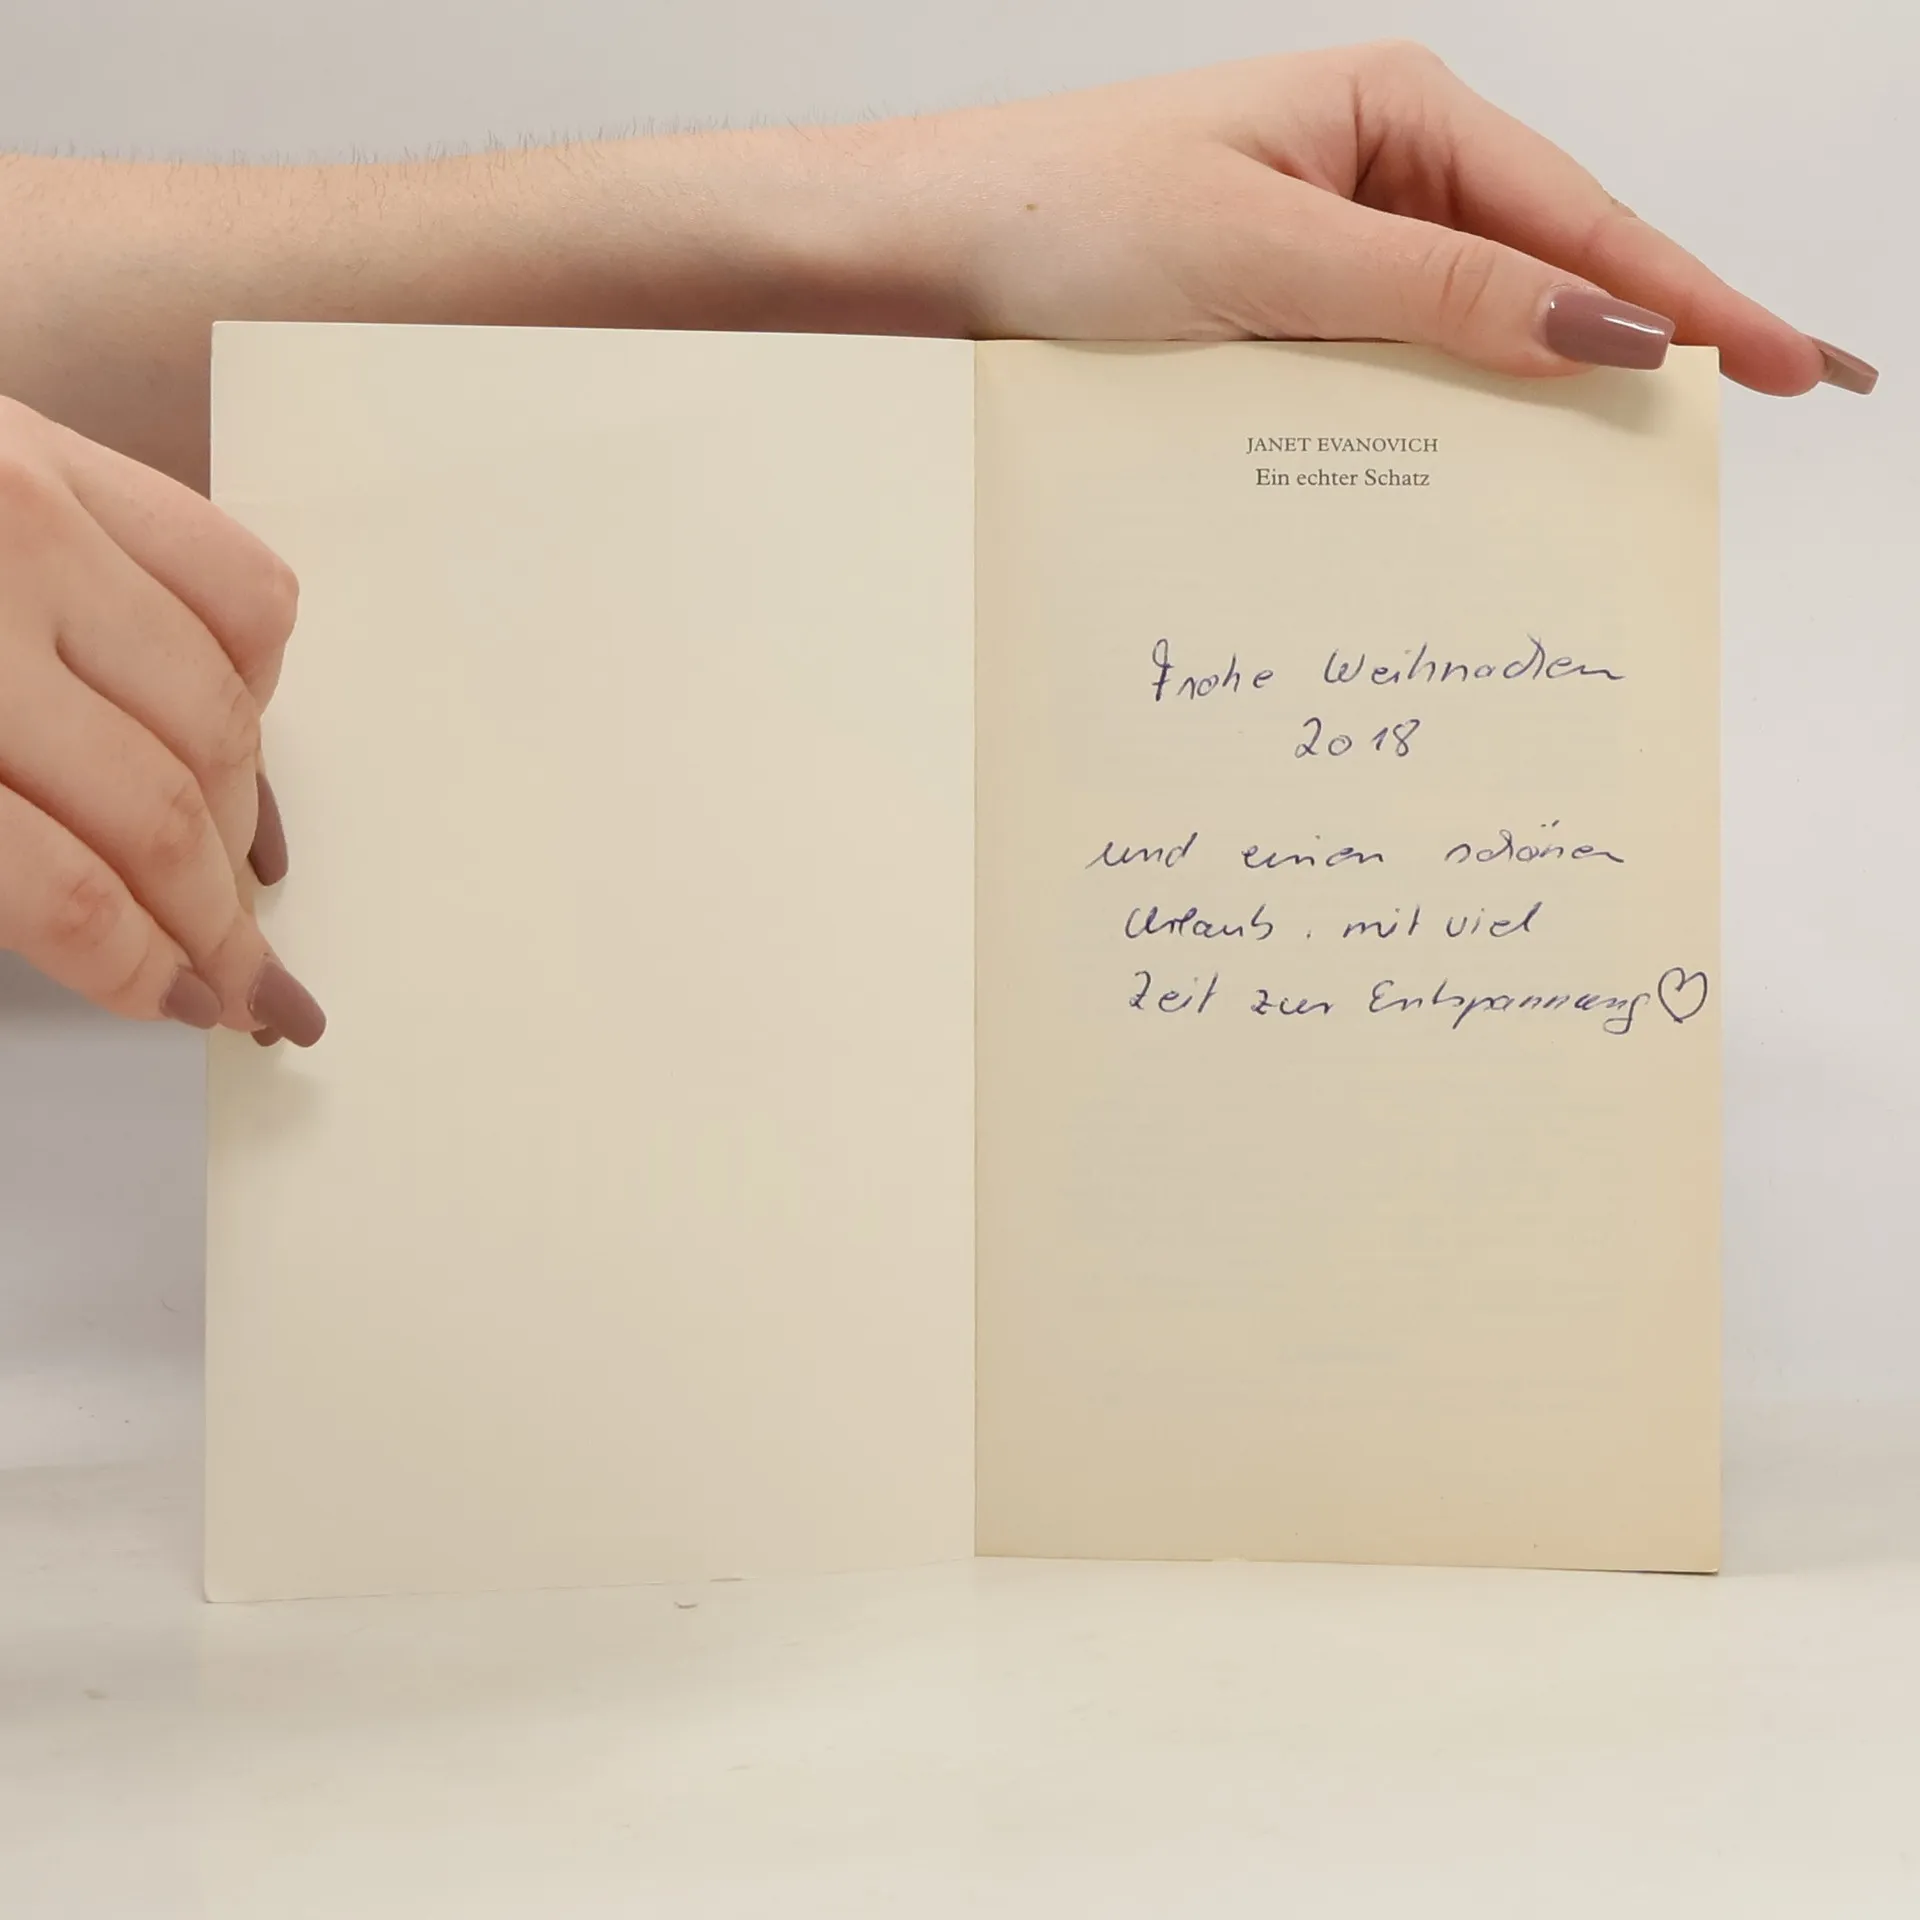 JANET EVANOVICH
Ein echter Schatz
Frohe Weihnachten
2018
und einen schönen
Urlaub, mit viel
Zeit zur Entspannung ♡